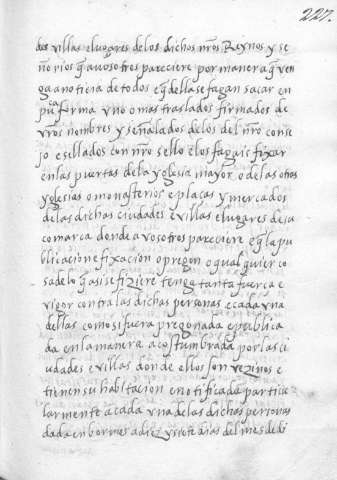 227.
des villas e lugares de los dichos nros Reynos y se
ñorios q̃ a vosotros paresciere por manera q̃ ven
ga a noticia de todos e q̃ della se fagan sacar en
puca forma uno o mas traslados firmados de
vros nombres y señalados de los del nro conse
jo e sellados con nro sello e los fagais fixar
en las puertas de la yglesia mayor o de las otras
yglesias o monasterios e plaças y mercados
de las dichas ciudades e villas e lugares de su
comarca donde a vosotros paresciere e q̃ la pu
blicacion e fixacion o pregon o qualquier co
sa dello q̃ asi se fiziere tenga tanta fuerça e
vigor contra las dichas personas e cada una
dellas como si fuera pregonada e publica
da en la manera acostumbrada por las ci
udades e villas donde ellos son vezinos e
tienen su habitacion e notificada particu
larmente a cada una de las dichas personas
dada en bormes a diez y siete dias del mes de di